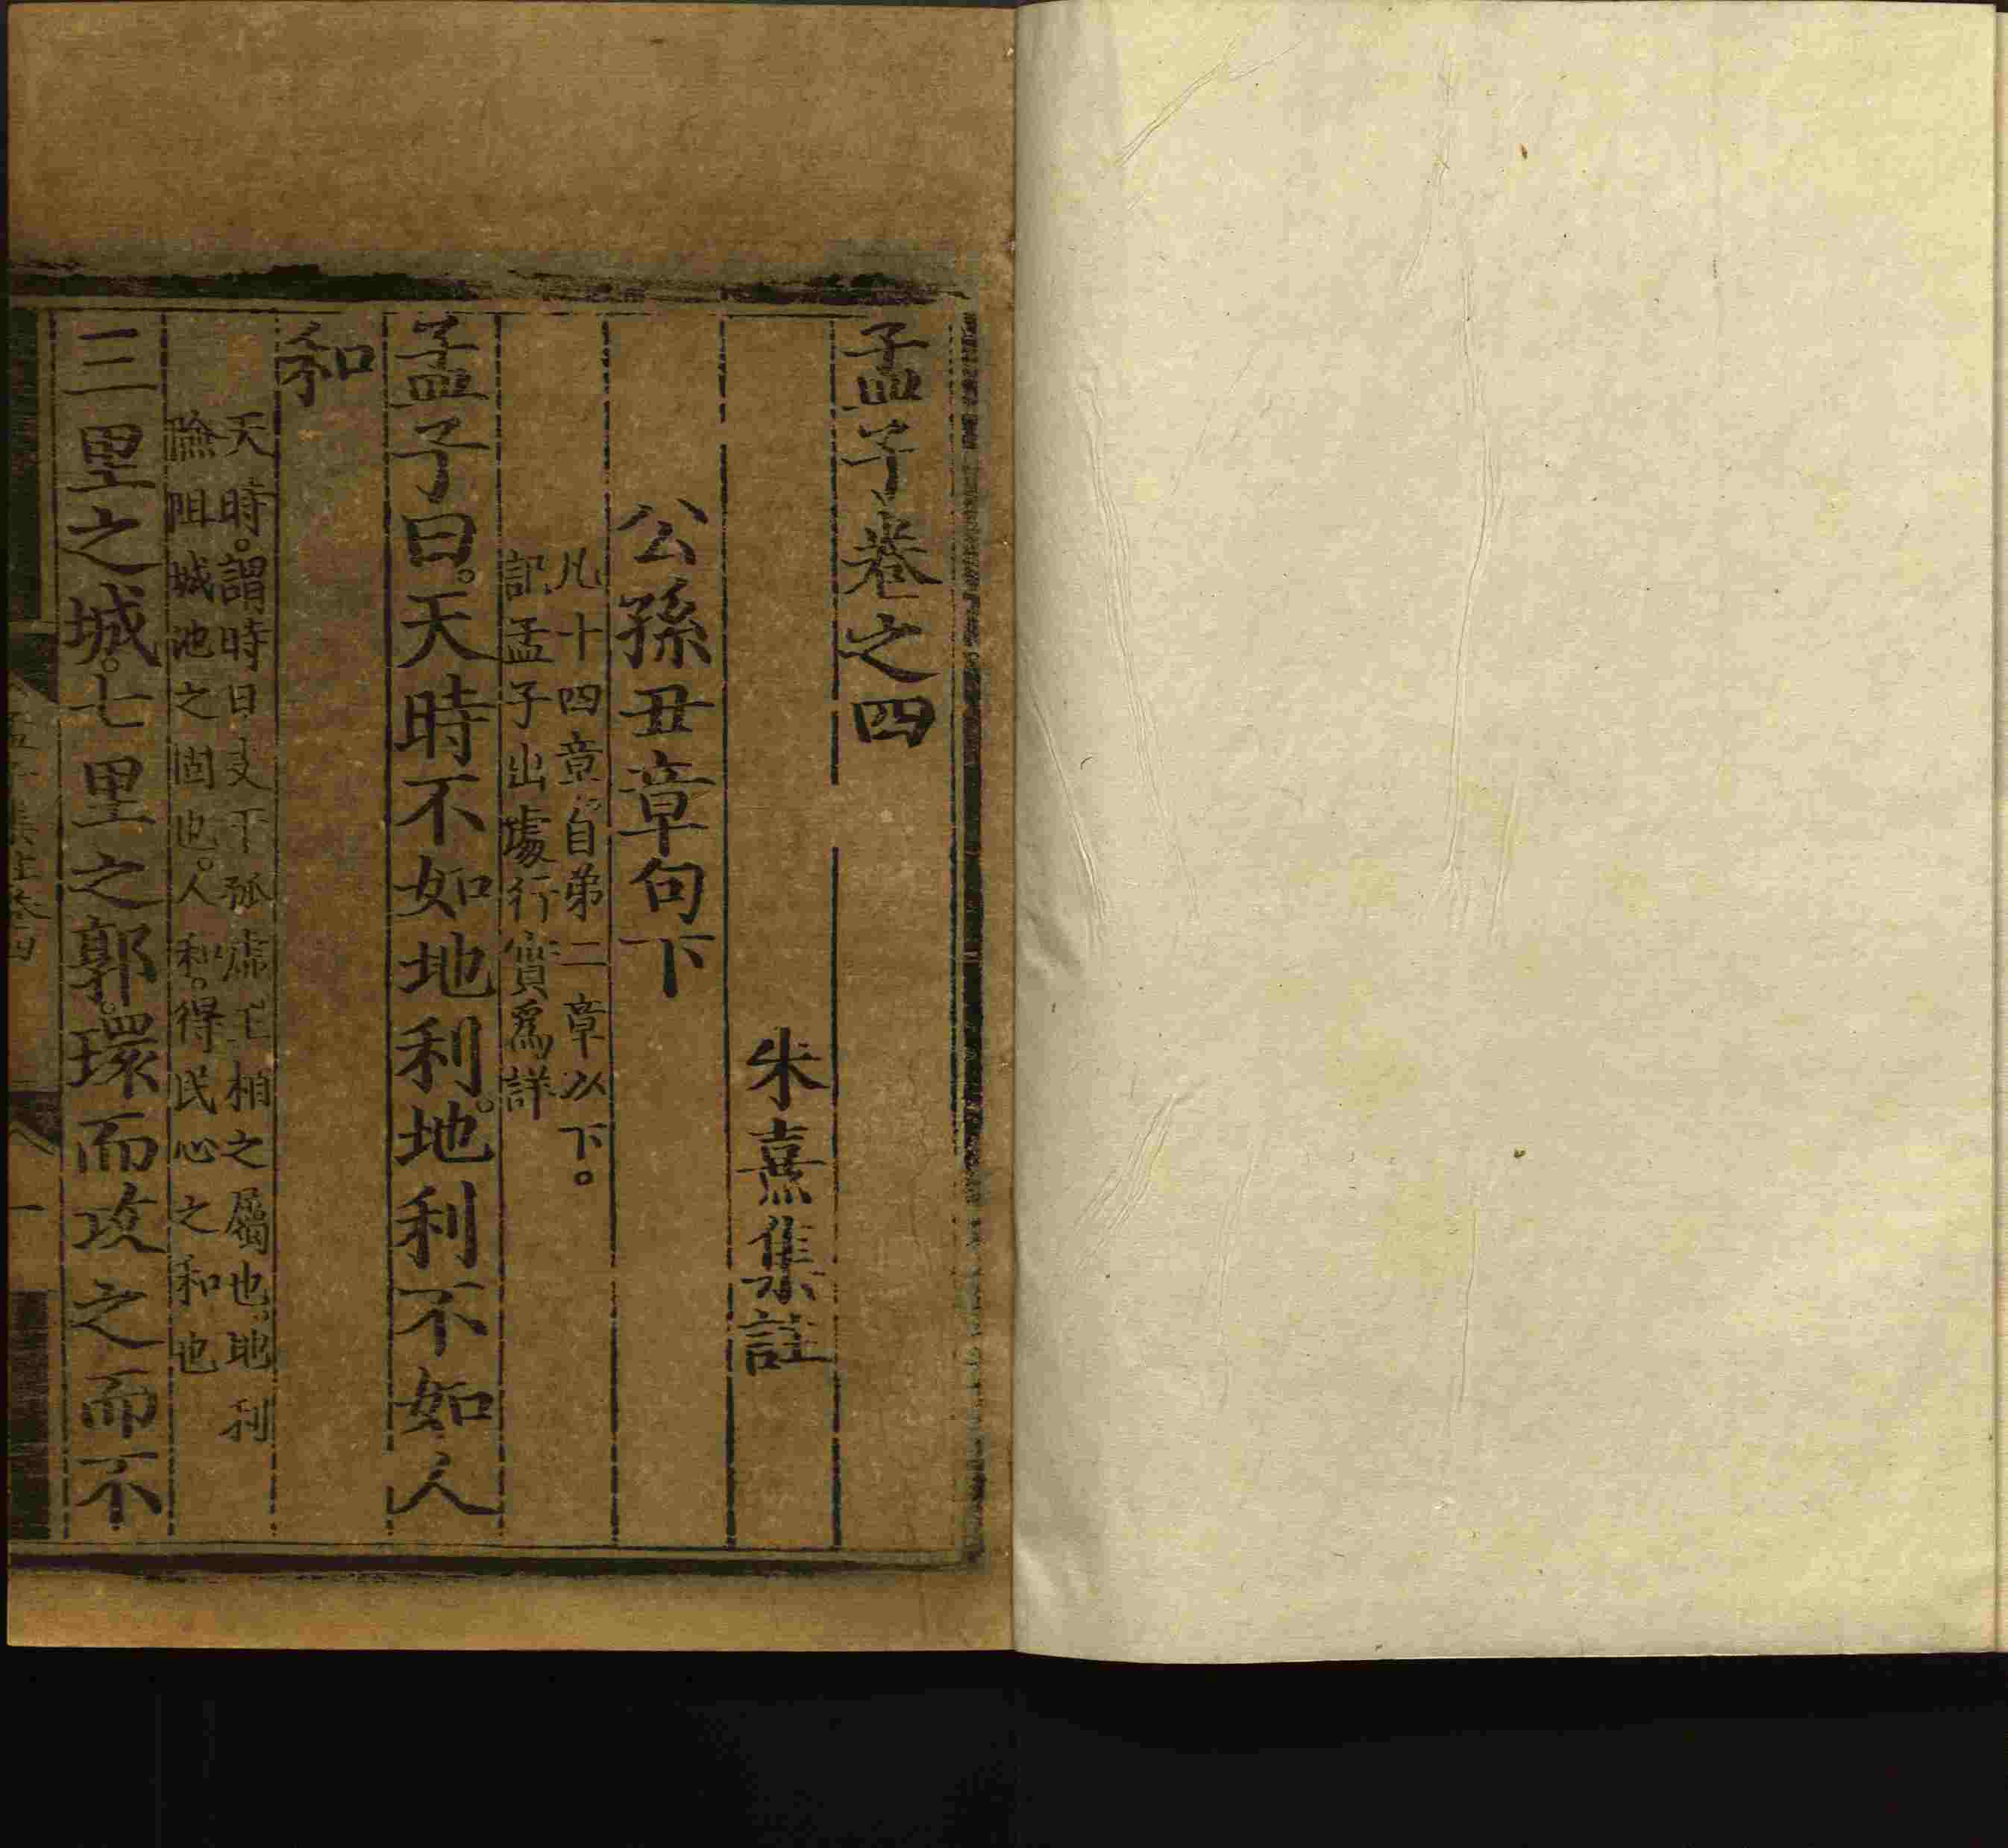 孟子卷之四
朱熹集註
公孫丑章句下
凡十四章自弟二章以下。
記孟子出處行實爲詳
孟子曰。天時不如地利。地利不如人
和
天時。謂時日支干孤虛王相之屬也。地利
險阻城池之固也。人和。得民心之和也
三里之城。七里之郭。環而攻之而不